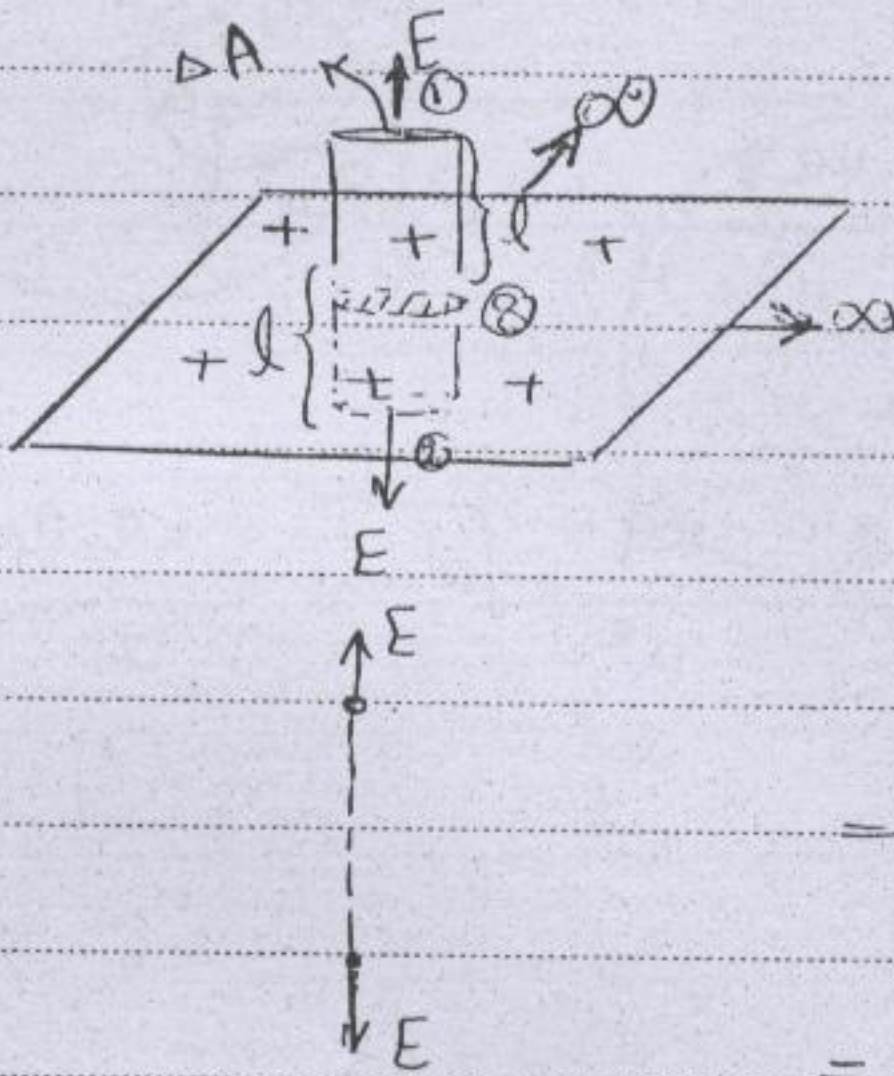 ΔA E ① ∞
+ + l +
l ②
+ + +
∞
②
E
E
=
E
-